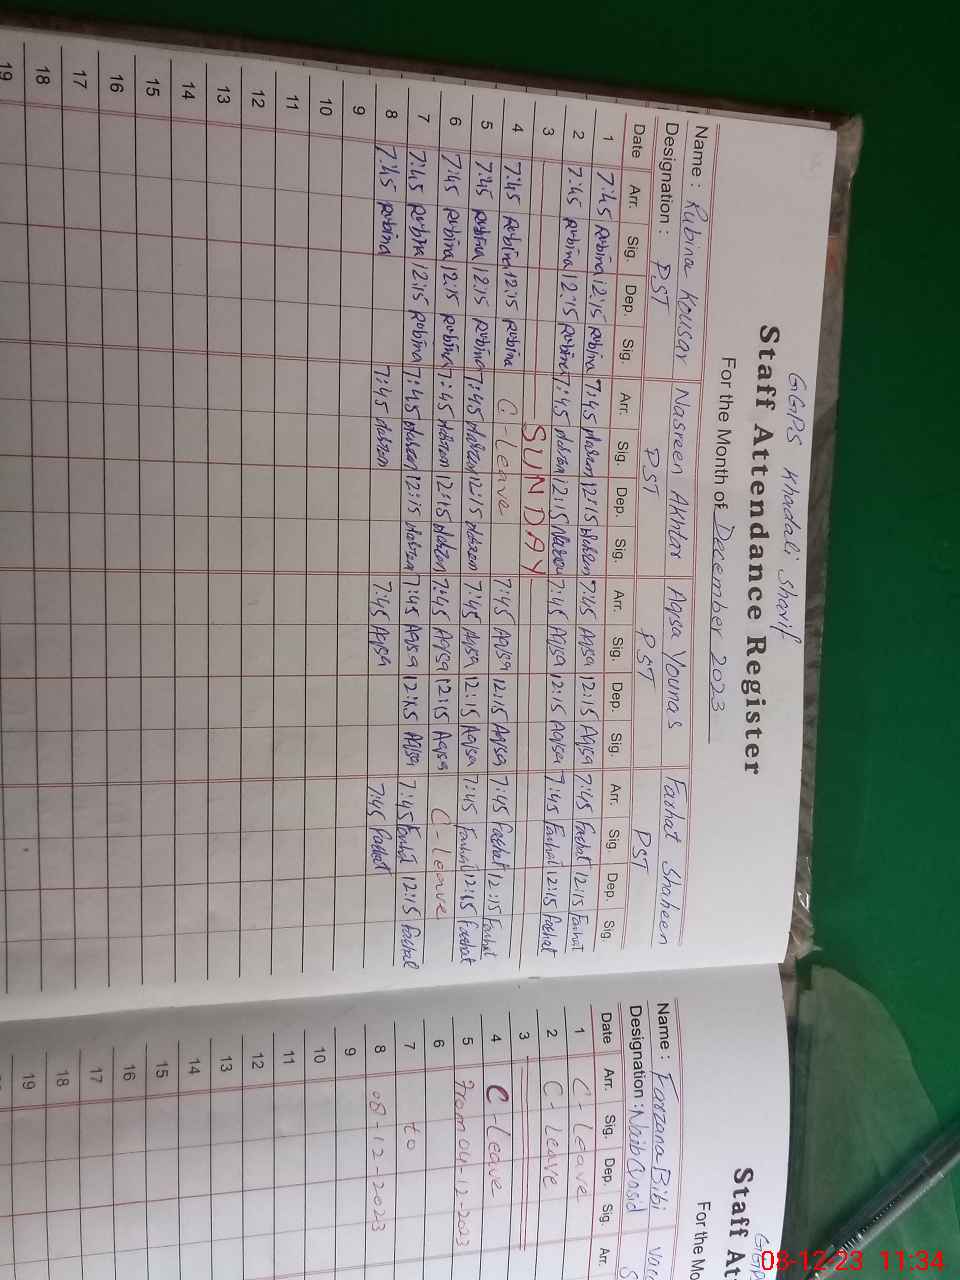 GGPS Khadali Sharif
Staff Attendance Register
For the Month of December 2023
Name : Rubina Kousar Nasreen Akhtar Aqsa Younas Farhat Shaheen
Designation : PST PST PST PST
Date Arr. Sig. Dep. Sig. Arr. Sig. Dep. Sig. Arr. Sig. Dep. Sig. Arr. Sig. Dep. Sig
1 7:45 Rubina 12:15 Rubina 7:45 Nasreen 12:15 Nasreen 7:45 Aqsa 12:15 Aqsa 7:45 Farhat 12:15 Farhat
2 7:45 Rubina 12:15 Rubina 7:45 Nasreen 12:15 Nasreen 7:45 Aqsa 12:15 Aqsa 7:45 Farhat 12:15 Farhat
3 SUNDAY
4 7:45 Rubina 12:15 Rubina C-Leave 7:45 Aqsa 12:15 Aqsa 7:45 Farhat 12:15 Farhat
5 7:45 Rubina 12:15 Rubina 7:45 Nasreen 12:15 Nasreen 7:45 Aqsa 12:15 Aqsa 7:45 Farhat 12:15 Farhat
6 7:45 Rubina 12:15 Rubina 7:45 Nasreen 12:15 Nasreen 7:45 Aqsa 12:15 Aqsa C-leave
7 7:45 Rubina 12:15 Rubina 7:45 Nasreen 12:15 Nasreen 7:45 Aqsa 12:15 Aqsa 7:45 Farhat 12:15 Farhat
8 7:45 Rubina 7:45 Nasreen 7:45 Aqsa 7:45 Farhat
9
10
11
12
13
14
15
16
17
18
19
GGP
Staff At
For the Mo
Name : Farzana Bibi
Designation : Naib Qasid S
Date Arr. Sig. Dep. Sig. Arr.
1 C-Leave
2 C-Leave
3
4 C-Leave
5 From 04-12-2023
6
7 to
8 08-12-2023
9
10
11
12
13
14
15
16
17
18
19
08-12-23 11:34